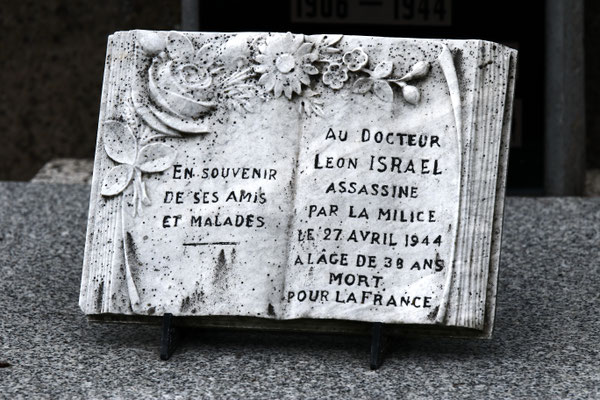 1906 — 1944
EN SOUVENIR
DE SES AMIS
ET MALADES
AU DOCTEUR
LEON ISRAEL
ASSASSINE
PAR LA MILICE
LE 27 AVRIL 1944
A LÂGE DE 38 ANS
MORT
POUR LA FRANCE